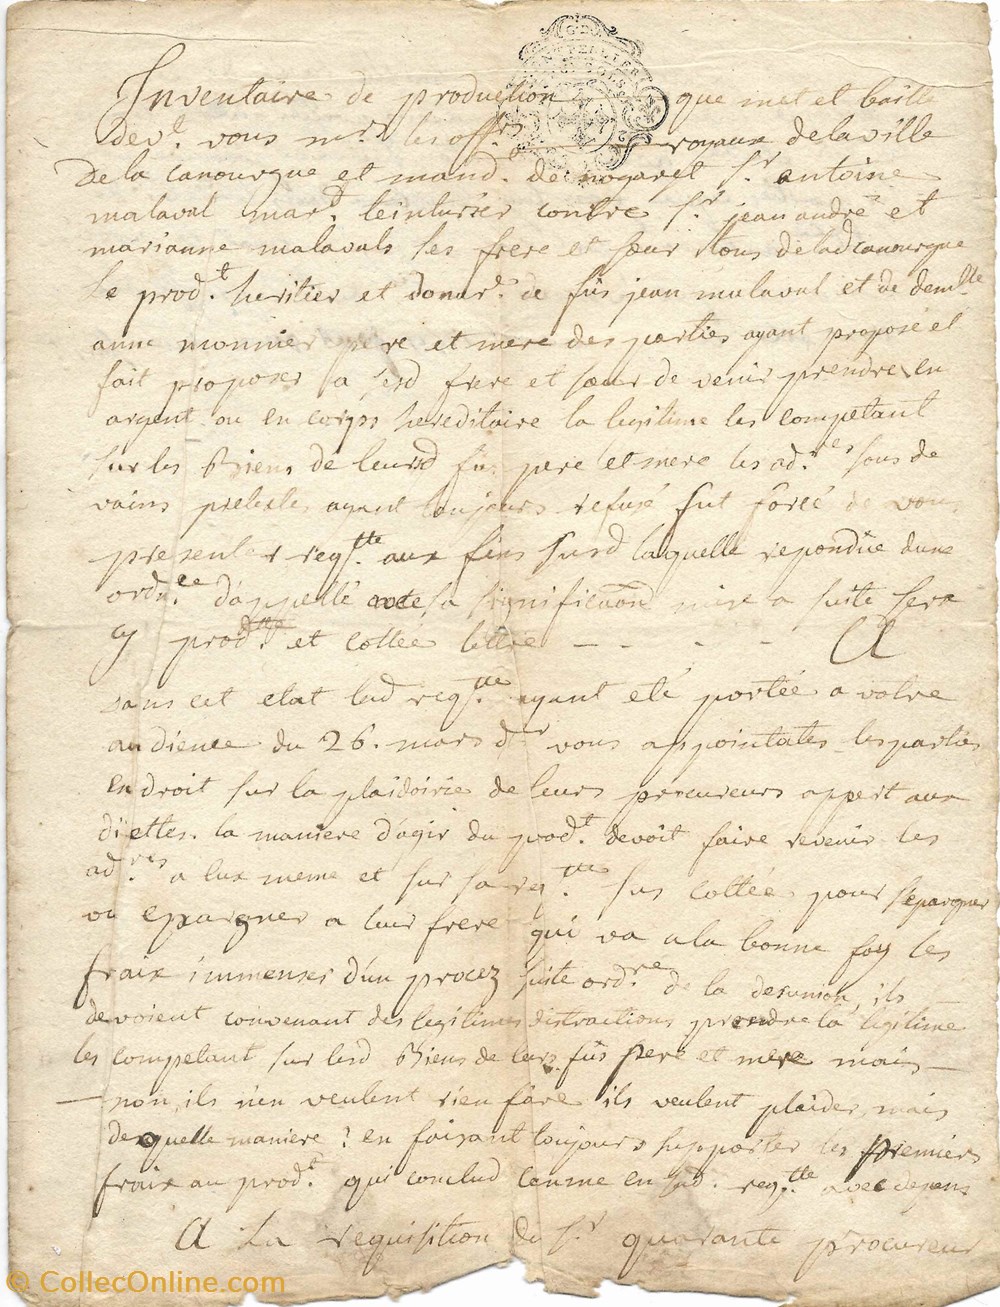 G.D.
MONTPELLIER
Inventaire de production que met et baille
dev.t vous m.rs les off.rs royaux de la ville
De la canourgue et mand.t de nogaret s.r antoine
malaval mar.d teinturier contre s.r jean andré et
marianne malavals ses frere et sœur tous de lad canourgue
Le prod.t heritier et donat.re de fûs jean malaval et de dem.lle
anne monnier pere et mere des parties ayant proposé et
fait proposer a sesd frere et sœur de venir prendre en
argent ou en corps hereditaire la legitime les competant
sur les Biens de leursd fûs pere et mere les ad.res sous de
vains pretextes ayant toujours refusé fut forcé de vous
presenter req.tte aux fins susd laquelle repondüe dune
ord.ce d'appellé avec sa signification mise a suite sera
cy prod.tte et cottée lettre - - - - A
dans cet etat lad req.tte ayant eté portée a votre
audience du 26. mars d.r vous appointates les parties
en droit sur la plaidoirie de leurs procureurs appert aux
dittes. la maniere d'agir du prod.t devoit faire revenir les
ad.res a lux meme et sur sa req.tte sus cottée pour s'epargner
ou epargner a leur frere qui va a la bonne foy les
fraix immenses d'un procez suite ord.re de la desunion, ils
devoient convenant des legitimes distractions prendre la legitime
les competant sur lesd Biens de leurs fûs pere et mere mais -
- non, ils n'en veulent rien faire ils veulent plaider, mais
de quelle maniere ? en faisant toujours supporter les premiers
fraix au prod.t qui conclud comme en sad. req.tte avec depens
A La requisition du s.r quarante procureur
© CollecOnline.com